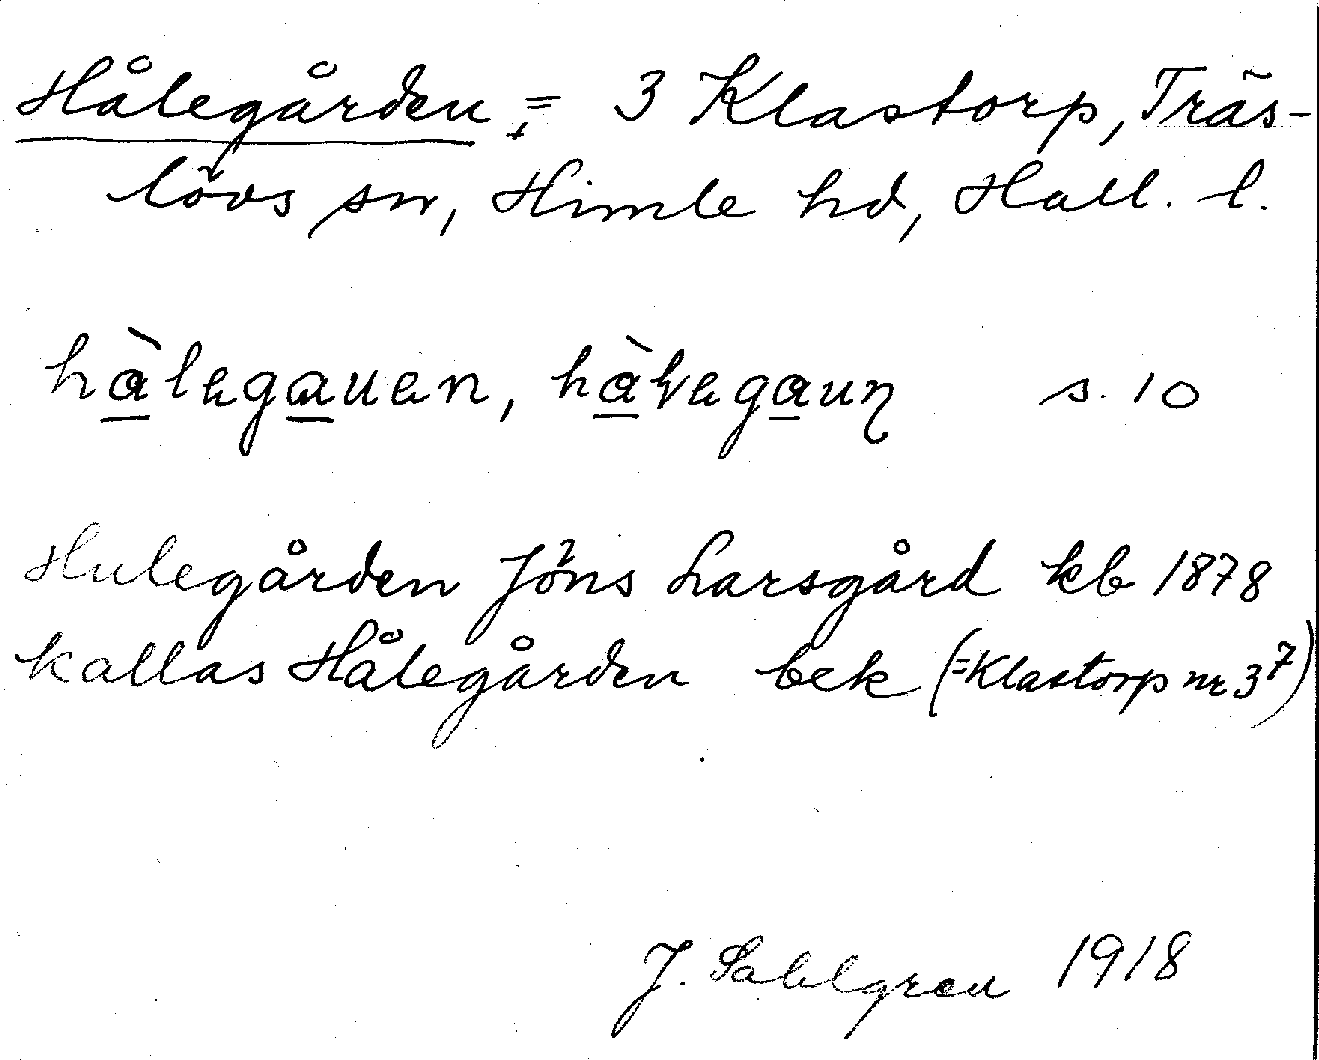 Hålegården, = 3 Klastorp, Träs-
lövs sn, Himle hd, Hall. l.
hàlegauen, s. 10
Hulegården Jöns Larsgård kb 1878
kallas Hålegården bek (=Klastorp nr 3⁷)
J. Sahlgren 1918